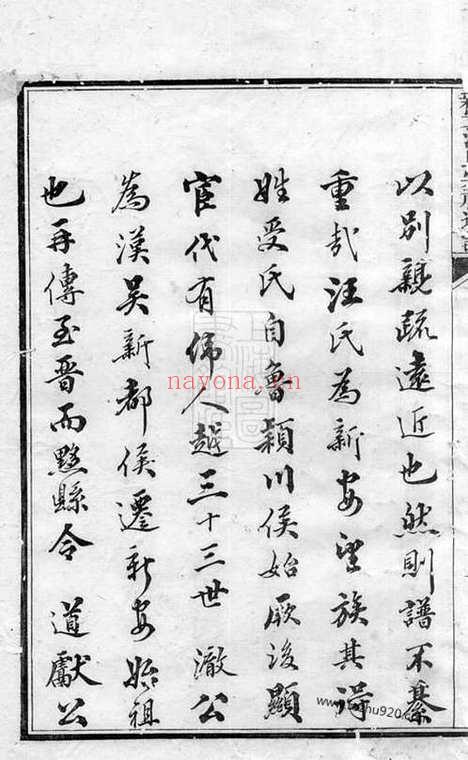 以別親疏遠近也然則譜不綦
重哉汪氏為新安望族其得
姓受氏自魯頴川侯始厥後顯
宦代有偉人越三十三世 澈公
為漢吳新都侯遷新安始祖
也再傳至晉而黟縣令 道獻公
nayona.vn